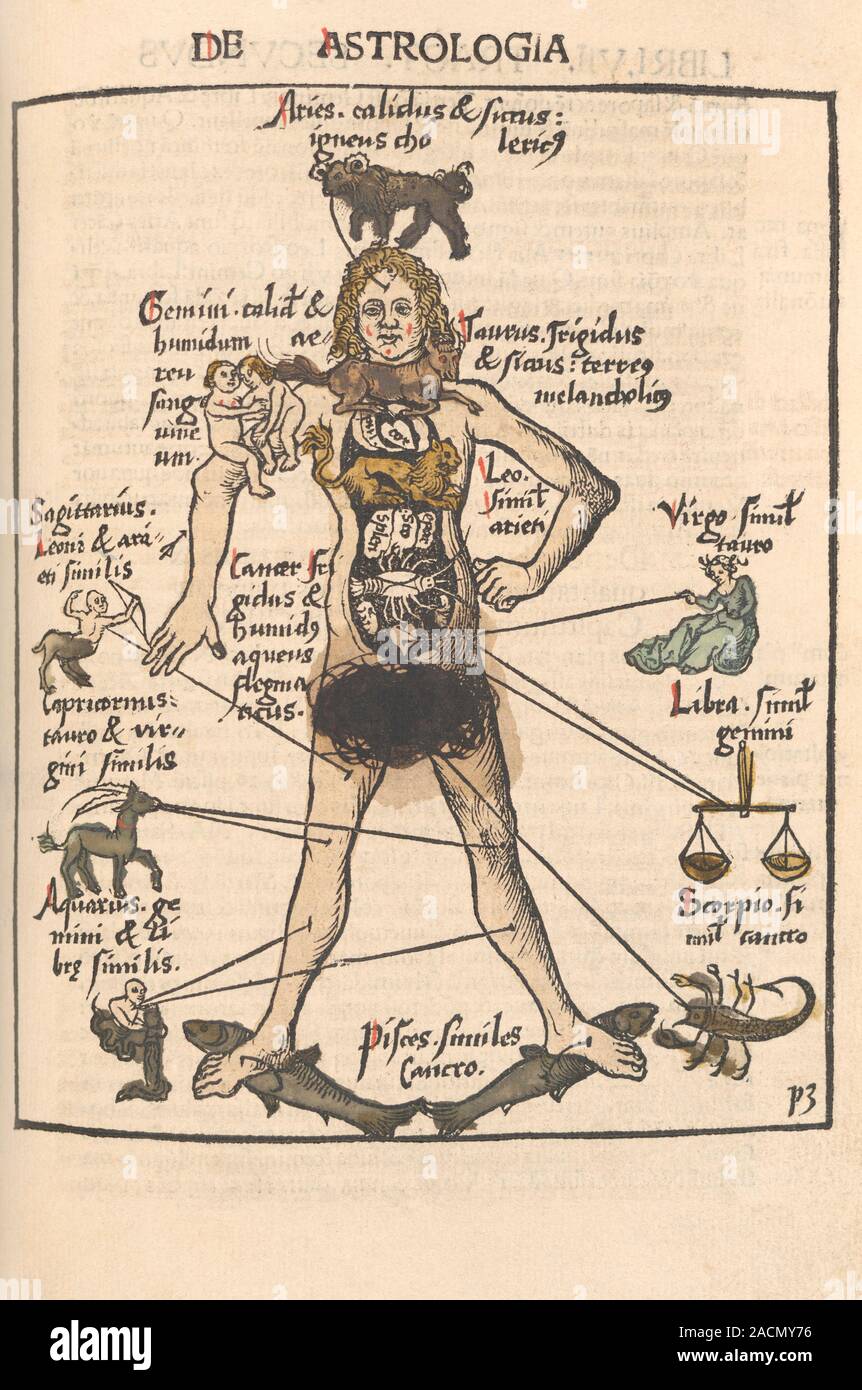 DE ASTROLOGIA
Aries. calidus & siccus:
igneus cho lericꝰ
Gemini. calid' &
humidum ae-
reu
sang
uine
um.
Taurus. frigidus
& siccus: terreꝰ
melancholicꝰ
cor
Leo.
simil'
arieti
Splen
Sto
Sagittarius.
Leoni & ari-
eti similis
Virgo. simil'
tauro
Cancer fri
gidus &
humidꝰ
aqueus
flegma
ticus.
Capricornus:
tauro & vir-
gini similis
Libra. simil'
gemini
Aquarius. ge
mini & li
brę similis.
Scorpio. si
mil' cancro
Pisces. similes
Cancro.
p3
alamy
Image ID: 2ACMY76
www.alamy.com